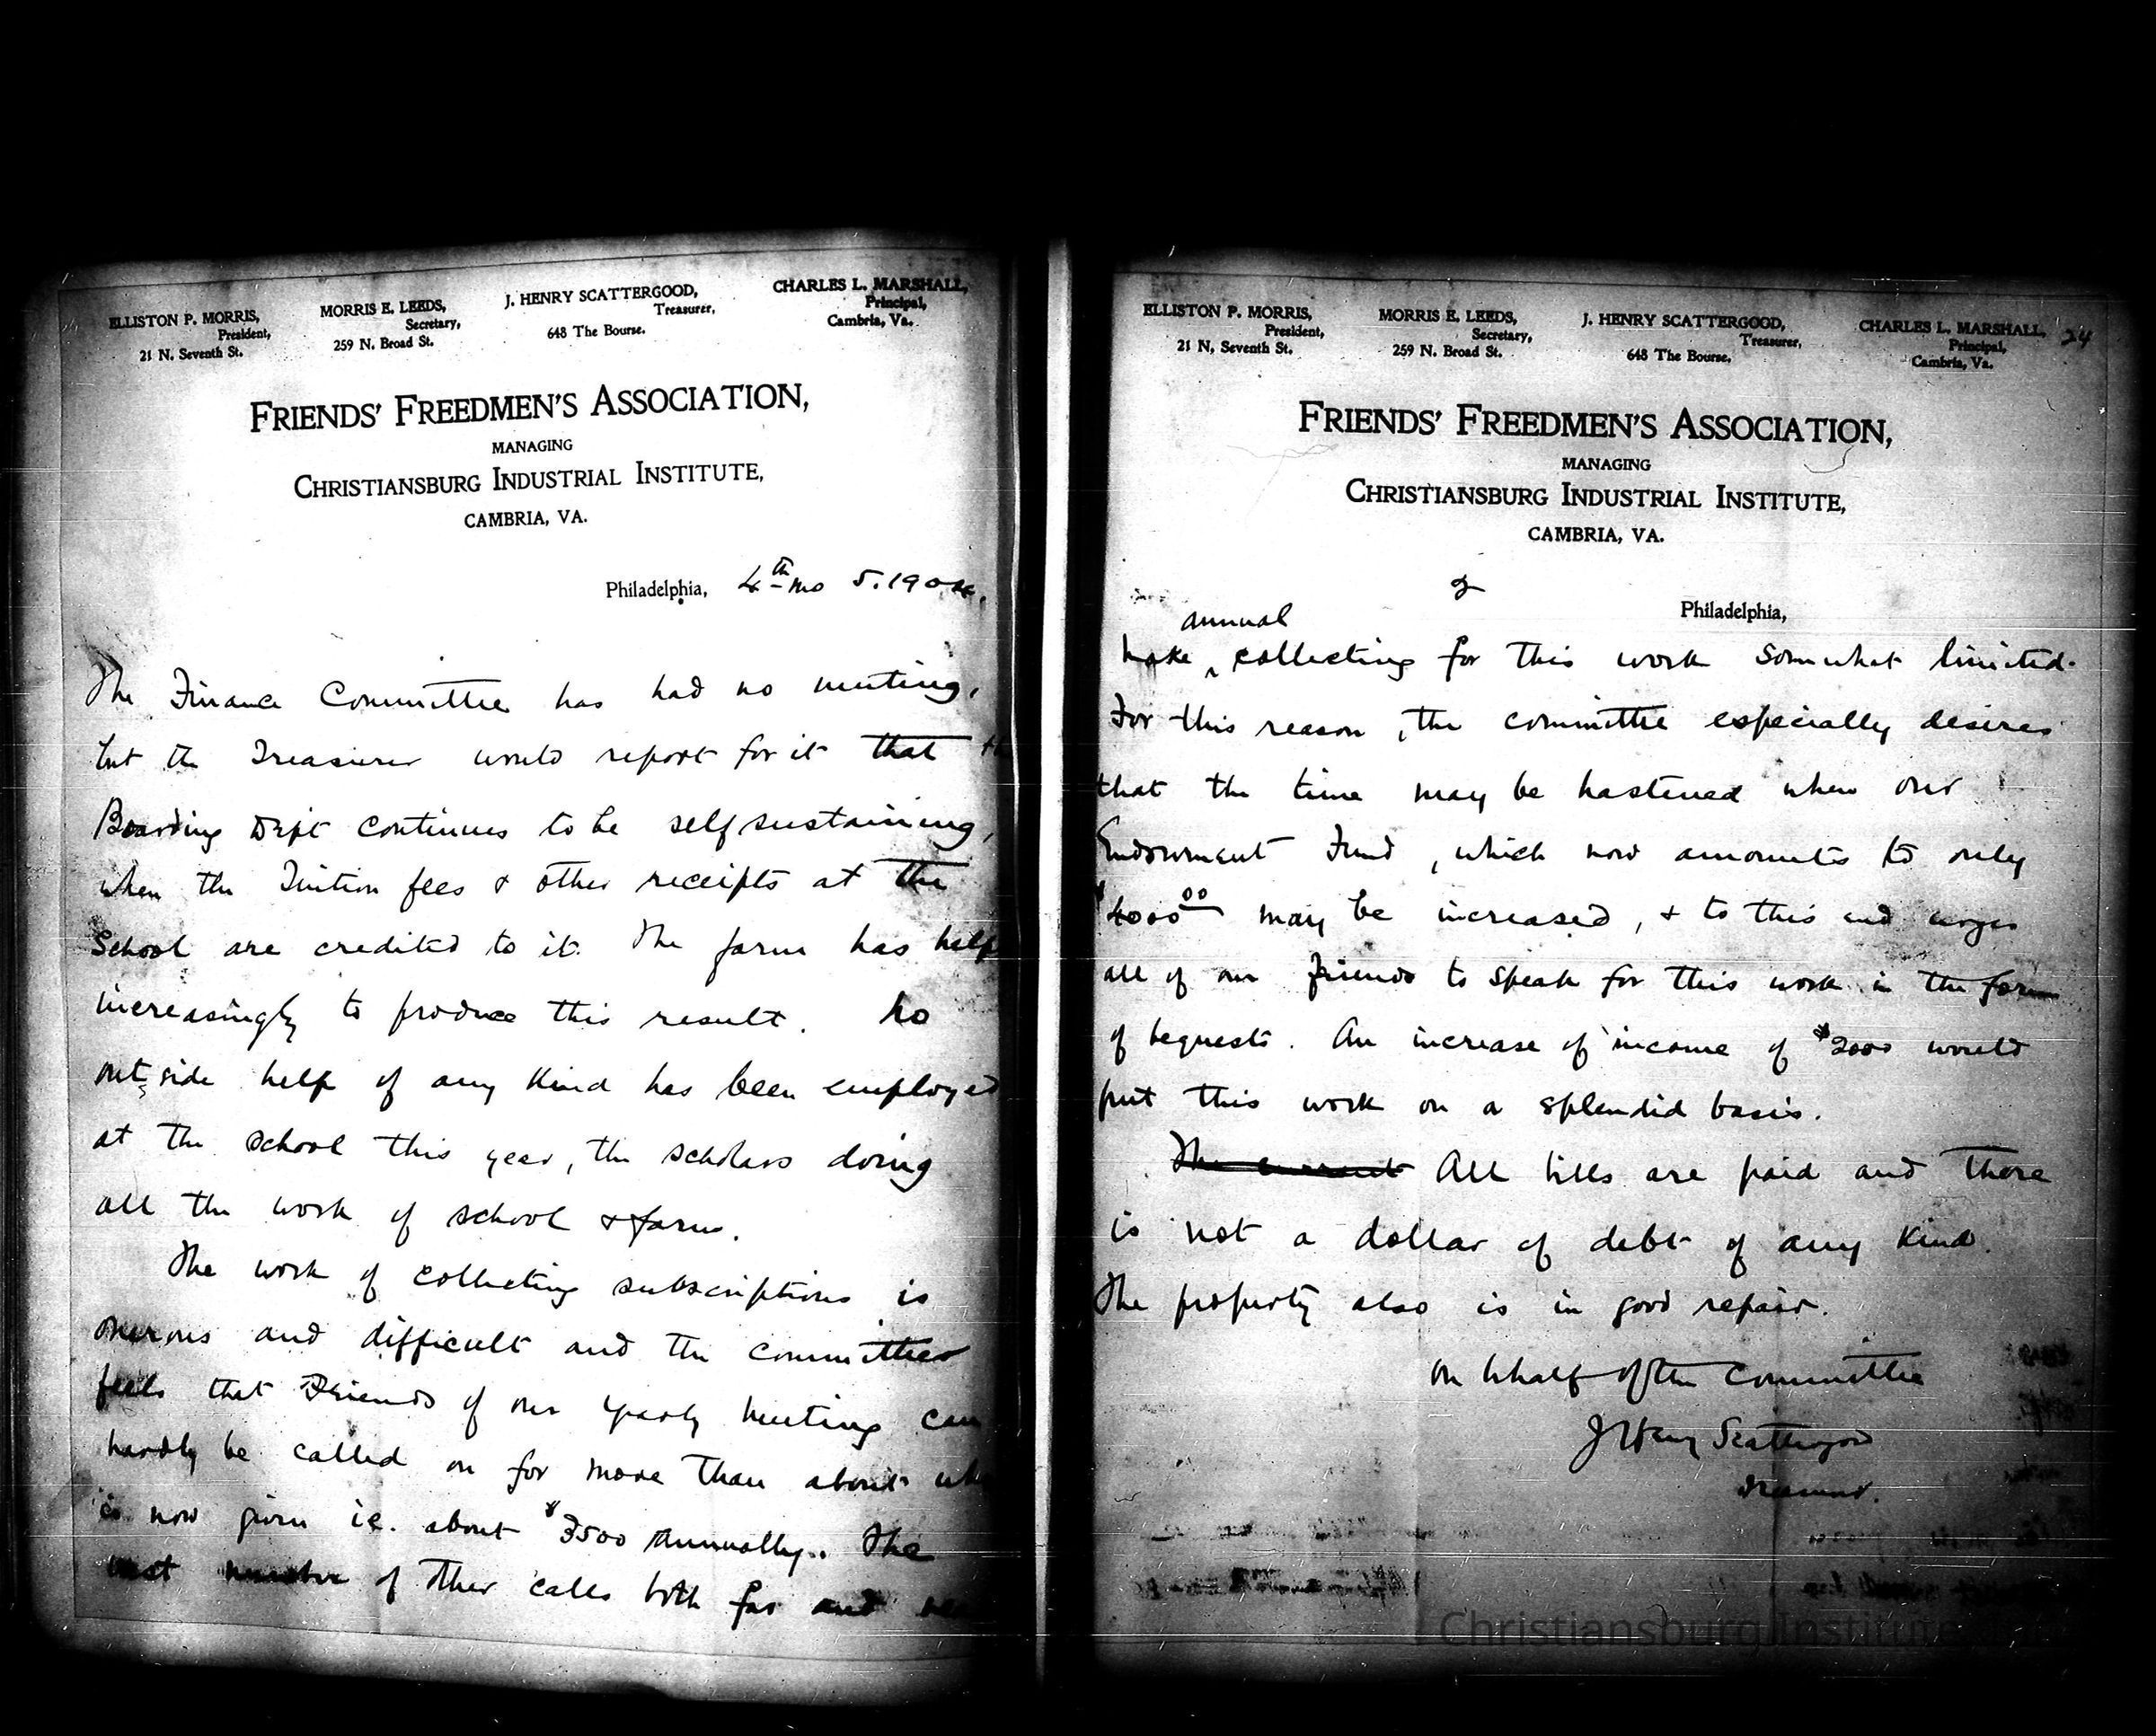 ELLISTON P. MORRIS,
President,
21 N. Seventh St.
MORRIS E. LEEDS,
Secretary,
259 N. Broad St.
J. HENRY SCATTERGOOD,
Treasurer,
648 The Bourse.
CHARLES L. MARSHALL,
Principal,
Cambria, Va.
FRIENDS' FREEDMEN'S ASSOCIATION,
MANAGING
CHRISTIANSBURG INDUSTRIAL INSTITUTE,
CAMBRIA, VA.
Philadelphia, 4th mo 5. 1904.
The Finance Committee has had no meeting,
but the Treasurer would report for it that
Boarding Dept continues to be self sustaining,
when the Tuition fees & other receipts at the
School are credited to it. The farm has help
increasingly to produce this result. No
outside help of any kind has been employed
at the school this year, the scholars doing
all the work of school & farm.
The work of collecting subscriptions is
onerous and difficult and the committee
feels that Friends of our Yearly Meeting can
hardly be called on for more than about
is now given i.e. about $3500 annually. The
vast number of other calls both far and
ELLISTON P. MORRIS,
President,
21 N. Seventh St.
MORRIS E. LEEDS,
Secretary,
259 N. Broad St.
J. HENRY SCATTERGOOD,
Treasurer,
648 The Bourse.
CHARLES L. MARSHALL,
Principal,
Cambria, Va.
24
FRIENDS' FREEDMEN'S ASSOCIATION,
MANAGING
CHRISTIANSBURG INDUSTRIAL INSTITUTE,
CAMBRIA, VA.
2
Philadelphia,
annual
make ‸ collecting for this work somewhat limited.
For this reason, the committee especially desires
that the time may be hastened when our
Endowment Fund, which now amounts to only
$4000 00 may be increased, & to this end urges
all of our friends to speak for this work in the form
of bequests. An increase of income of $2000 would
put this work on a splendid basis.
The current All bills are paid and there
is not a dollar of debt of any kind.
The property also is in good repair.
On behalf of the Committee
J Henry Scattergood
Treasurer.
Christiansburg Institute